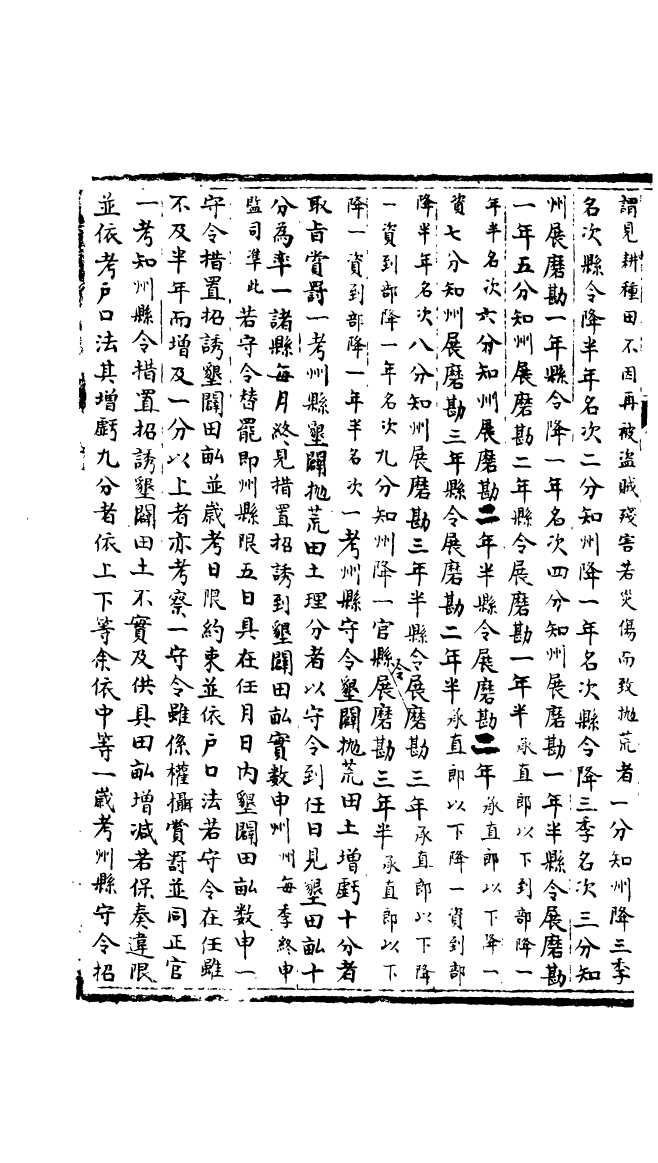 謂見耕種田不因再被盜賊殘害若災傷而致拋荒者一分知州降三季
名次縣令降半年名次二分知州降一年名次縣令降三季名次三分知
州展磨勘一年縣令降一年名次四分知州展磨勘一年半縣令展磨勘
一年五分知州展磨勘二年縣令展磨勘一年半承直郎以下到部降一
年半名次六分知州展磨勘二年半縣令展磨勘二年承直郎以下降一
資七分知州展磨勘三年縣令展磨勘二年半承直郎以下降一資到部
降半年名次八分知州展磨勘三年半縣令展磨勘三年承直郎以下降
一資到部降一年名次九分知州降一官縣令展磨勘三年半承直郎以下
降一資到部降一年半名次一考州縣守令墾闢拋荒田土增虧十分者
取旨賞罰一考州縣墾闢拋荒田土理分者以守令到任日見墾田畝十
分為率一諸縣每月終見措置招誘到墾闢田畝實數申州州每季終申
監司準此若守令替罷即州縣限五日具在任月日內墾闢田畝數申一
守令措置招誘墾闢田畝並歲考日限約束並依戶口法若守令在任雖
不及半年而增及一分以上者亦考察一守令雖係權攝賞罰並同正官
一考知州縣令措置招誘墾闢田土不實及供具田畝增減若保奏違限
並依考戶口法其增虧九分者依上下等余依中等一歲考州縣守令招